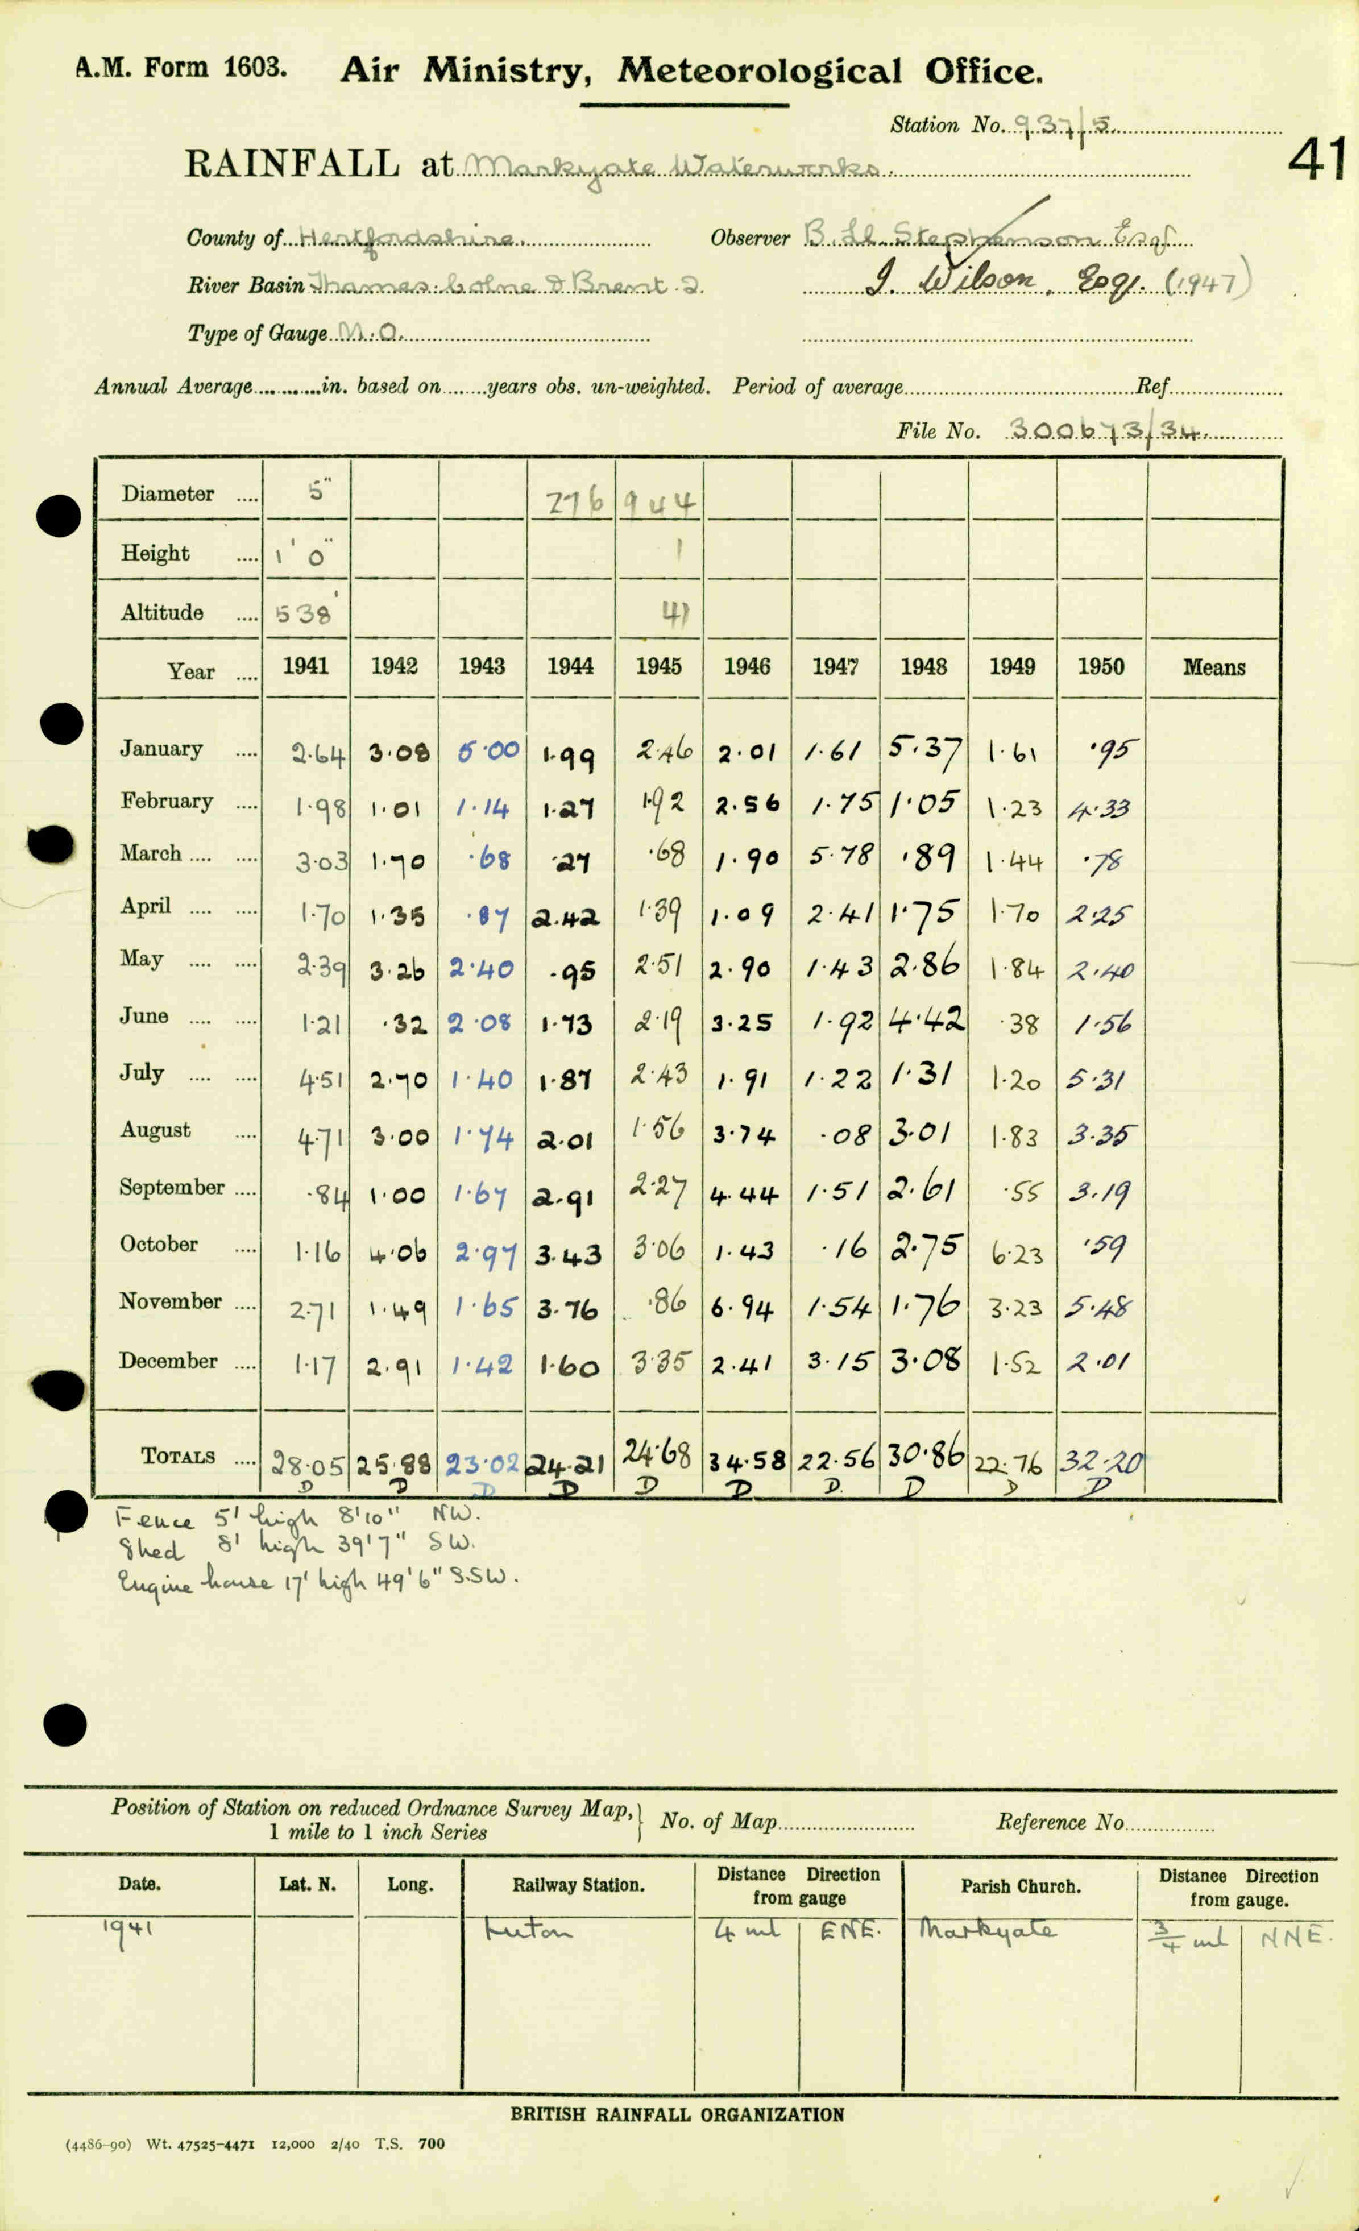 A.M. Form 1603. Air Ministry, Meteorological Office.
Station No. 937/5.
41
RAINFALL at Markyate Waterworks.
County of Hertfordshire. Observer B. Ll Stephenson Esqr
River Basin Thames. Colne & Brent. 2. I. Wilson, Esq. (1947)
Type of Gauge M.O.
Annual Average..........in. based on.......years obs. un-weighted. Period of average Ref.
File No. 300673/34.
Diameter .... 5" 276 944
Height .... 1' 0" 1
Altitude .... 538' 41
Year .... 1941 1942 1943 1944 1945 1946 1947 1948 1949 1950 Means
January .... 2.64 3.08 5.00 1.99 2.46 2.01 1.61 5.37 1.61 .95
February .... 1.98 1.01 1.14 1.27 1.92 2.56 1.75 1.05 1.23 4.33
March .... .... 3.03 1.70 .68 .27 .68 1.90 5.78 .89 1.44 .78
April .... .... 1.70 1.35 .87 2.42 1.39 1.09 2.41 1.75 1.70 2.25
May .... .... 2.39 3.26 2.40 .95 2.51 2.90 1.43 2.86 1.84 2.40
June .... .... 1.21 .32 2.08 1.73 2.19 3.25 1.92 4.42 .38 1.56
July .... .... 4.51 2.70 1.40 1.87 2.43 1.91 1.22 1.31 1.20 5.31
August .... 4.71 3.00 1.74 2.01 1.56 3.74 .08 3.01 1.83 3.35
September .... .84 1.00 1.67 2.91 2.27 4.44 1.51 2.61 .55 3.19
October .... 1.16 4.06 2.97 3.43 3.06 1.43 .16 2.75 6.23 .59
November .... 2.71 1.49 1.65 3.76 .86 6.94 1.54 1.76 3.23 5.48
December .... 1.17 2.91 1.42 1.60 3.35 2.41 3.15 3.08 1.52 2.01
TOTALS .... 28.05 25.88 23.02 24.21 24.68 34.58 22.56 30.86 22.76 32.20
D D D D D D D. D D D
Fence 5' high 8'10" NW.
Shed 8' high 39'7" SW.
Engine house 17' high 49'6" SSW.
Position of Station on reduced Ordnance Survey Map,} No. of Map Reference No.
1 mile to 1 inch Series
Date. Lat. N. Long. Railway Station. Distance Direction from gauge Parish Church. Distance Direction from gauge.
1941 Luton 4 ml ENE. Markyate 3/4 ml NNE.
BRITISH RAINFALL ORGANIZATION
(4486-90) Wt. 47525-4471 12,000 2/40 T.S. 700